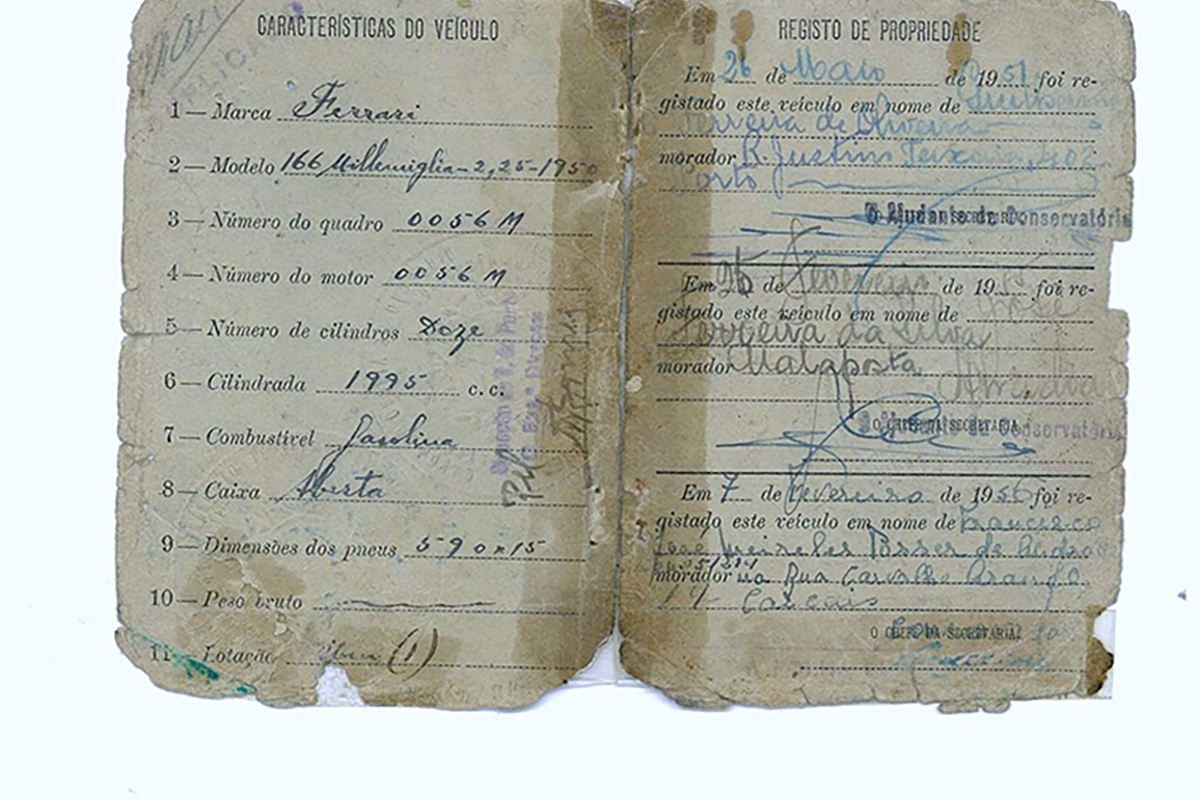 CARACTERÍSTICAS DO VEÍCULO
1—Marca Ferrari
2—Modelo 166 Millemiglia-2,25-1950
3—Número do quadro 0056 M
4—Número do motor 0056 M
5—Número de cilindros Doze
6—Cilindrada 1995 c.c.
7—Combustível Gasolina
8—Caixa Aberta
9—Dimensões dos pneus 590x15
10—Peso bruto
11—Lotação (1)
REGISTO DE PROPRIEDADE
Em 26 de Maio de 1951 foi re-
gistado este veículo em nome de Guilherme
Ferreira de Oliveira
morador R. Justino Teixeira, 406
Porto
O Ajudante da Conservatória
Em 25 de Fevereiro de 19 foi re-
gistado este veículo em nome de José
Ferreira da Silva
morador Malaposta
O CHEFE DA SECRETARIA,
O Ajudante da Conservatória
Em 7 de Fevereiro de 1956 foi re-
gistado este veículo em nome de Francisco
José Meireles Posser de
morador na Rua Carvalho Araujo
14 Cascais
O CHEFE DA SECRETARIA,